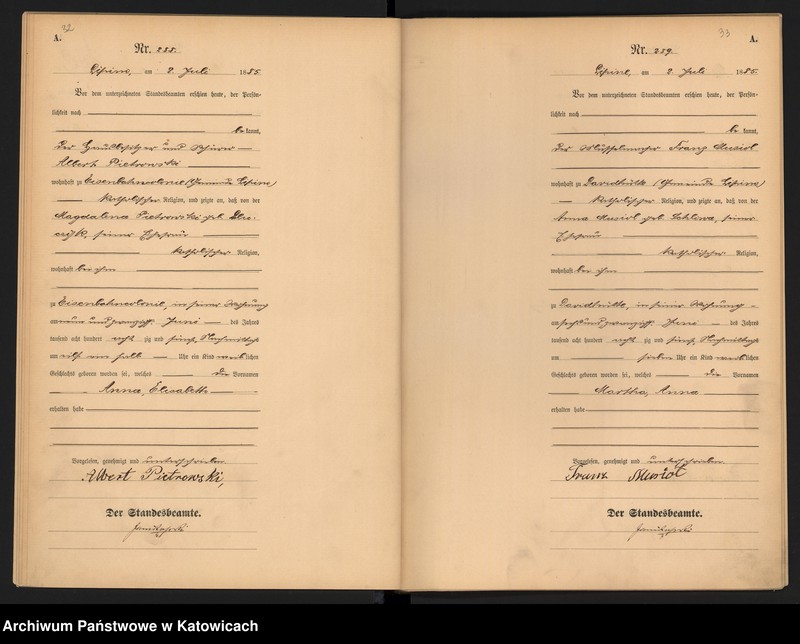 32
A.
Nr. 258.
Lipine, am 2 Juli 1885.
Vor dem unterzeichneten Standesbeamten erschien heute, der Persön-
lichkeit nach
be kannt,
der Hausbesitzer und
Albert Pietrowski
wohnhaft zu Eisenbahncolonie (Gemeinde Lipine)
katholischer Religion, und zeigte an, daß von der
Magdalena Pietrowski geb.
seiner Ehefrau
katholischer Religion,
wohnhaft bei ihm
zu Eisenbahncolonie, in seiner Wohnung
am neun und zwanzigst. Juni des Jahres
tausend acht hundert acht zig und fünf, Nachmittags
um elf ein halb Uhr ein Kind weib lichen
Geschlechts geboren worden sei, welches die Vornamen
Anna, Elisabeth
erhalten habe
Vorgelesen, genehmigt und unterschrieben
Albert Pietrowski,
Der Standesbeamte.
33
A.
Nr. 259.
Lipine, am 2 Juli 1885.
Vor dem unterzeichneten Standesbeamten erschien heute, der Persön-
lichkeit nach
be kannt,
der Franz Musiol
wohnhaft zu Davidhütte (Gemeinde Lipine)
katholischer Religion, und zeigte an, daß von der
Anna Musiol geb. seiner
Ehefrau
katholischer Religion,
wohnhaft bei ihm
zu Davidhütte, in seiner Wohnung
am sechs und zwanzigst. Juni des Jahres
tausend acht hundert acht zig und fünf, Nachmittags
um sieben Uhr ein Kind weib lichen
Geschlechts geboren worden sei, welches die Vornamen
Martha, Anna
erhalten habe
Vorgelesen, genehmigt und unterschrieben
Franz Musiol
Der Standesbeamte.
Archiwum Państwowe w Katowicach